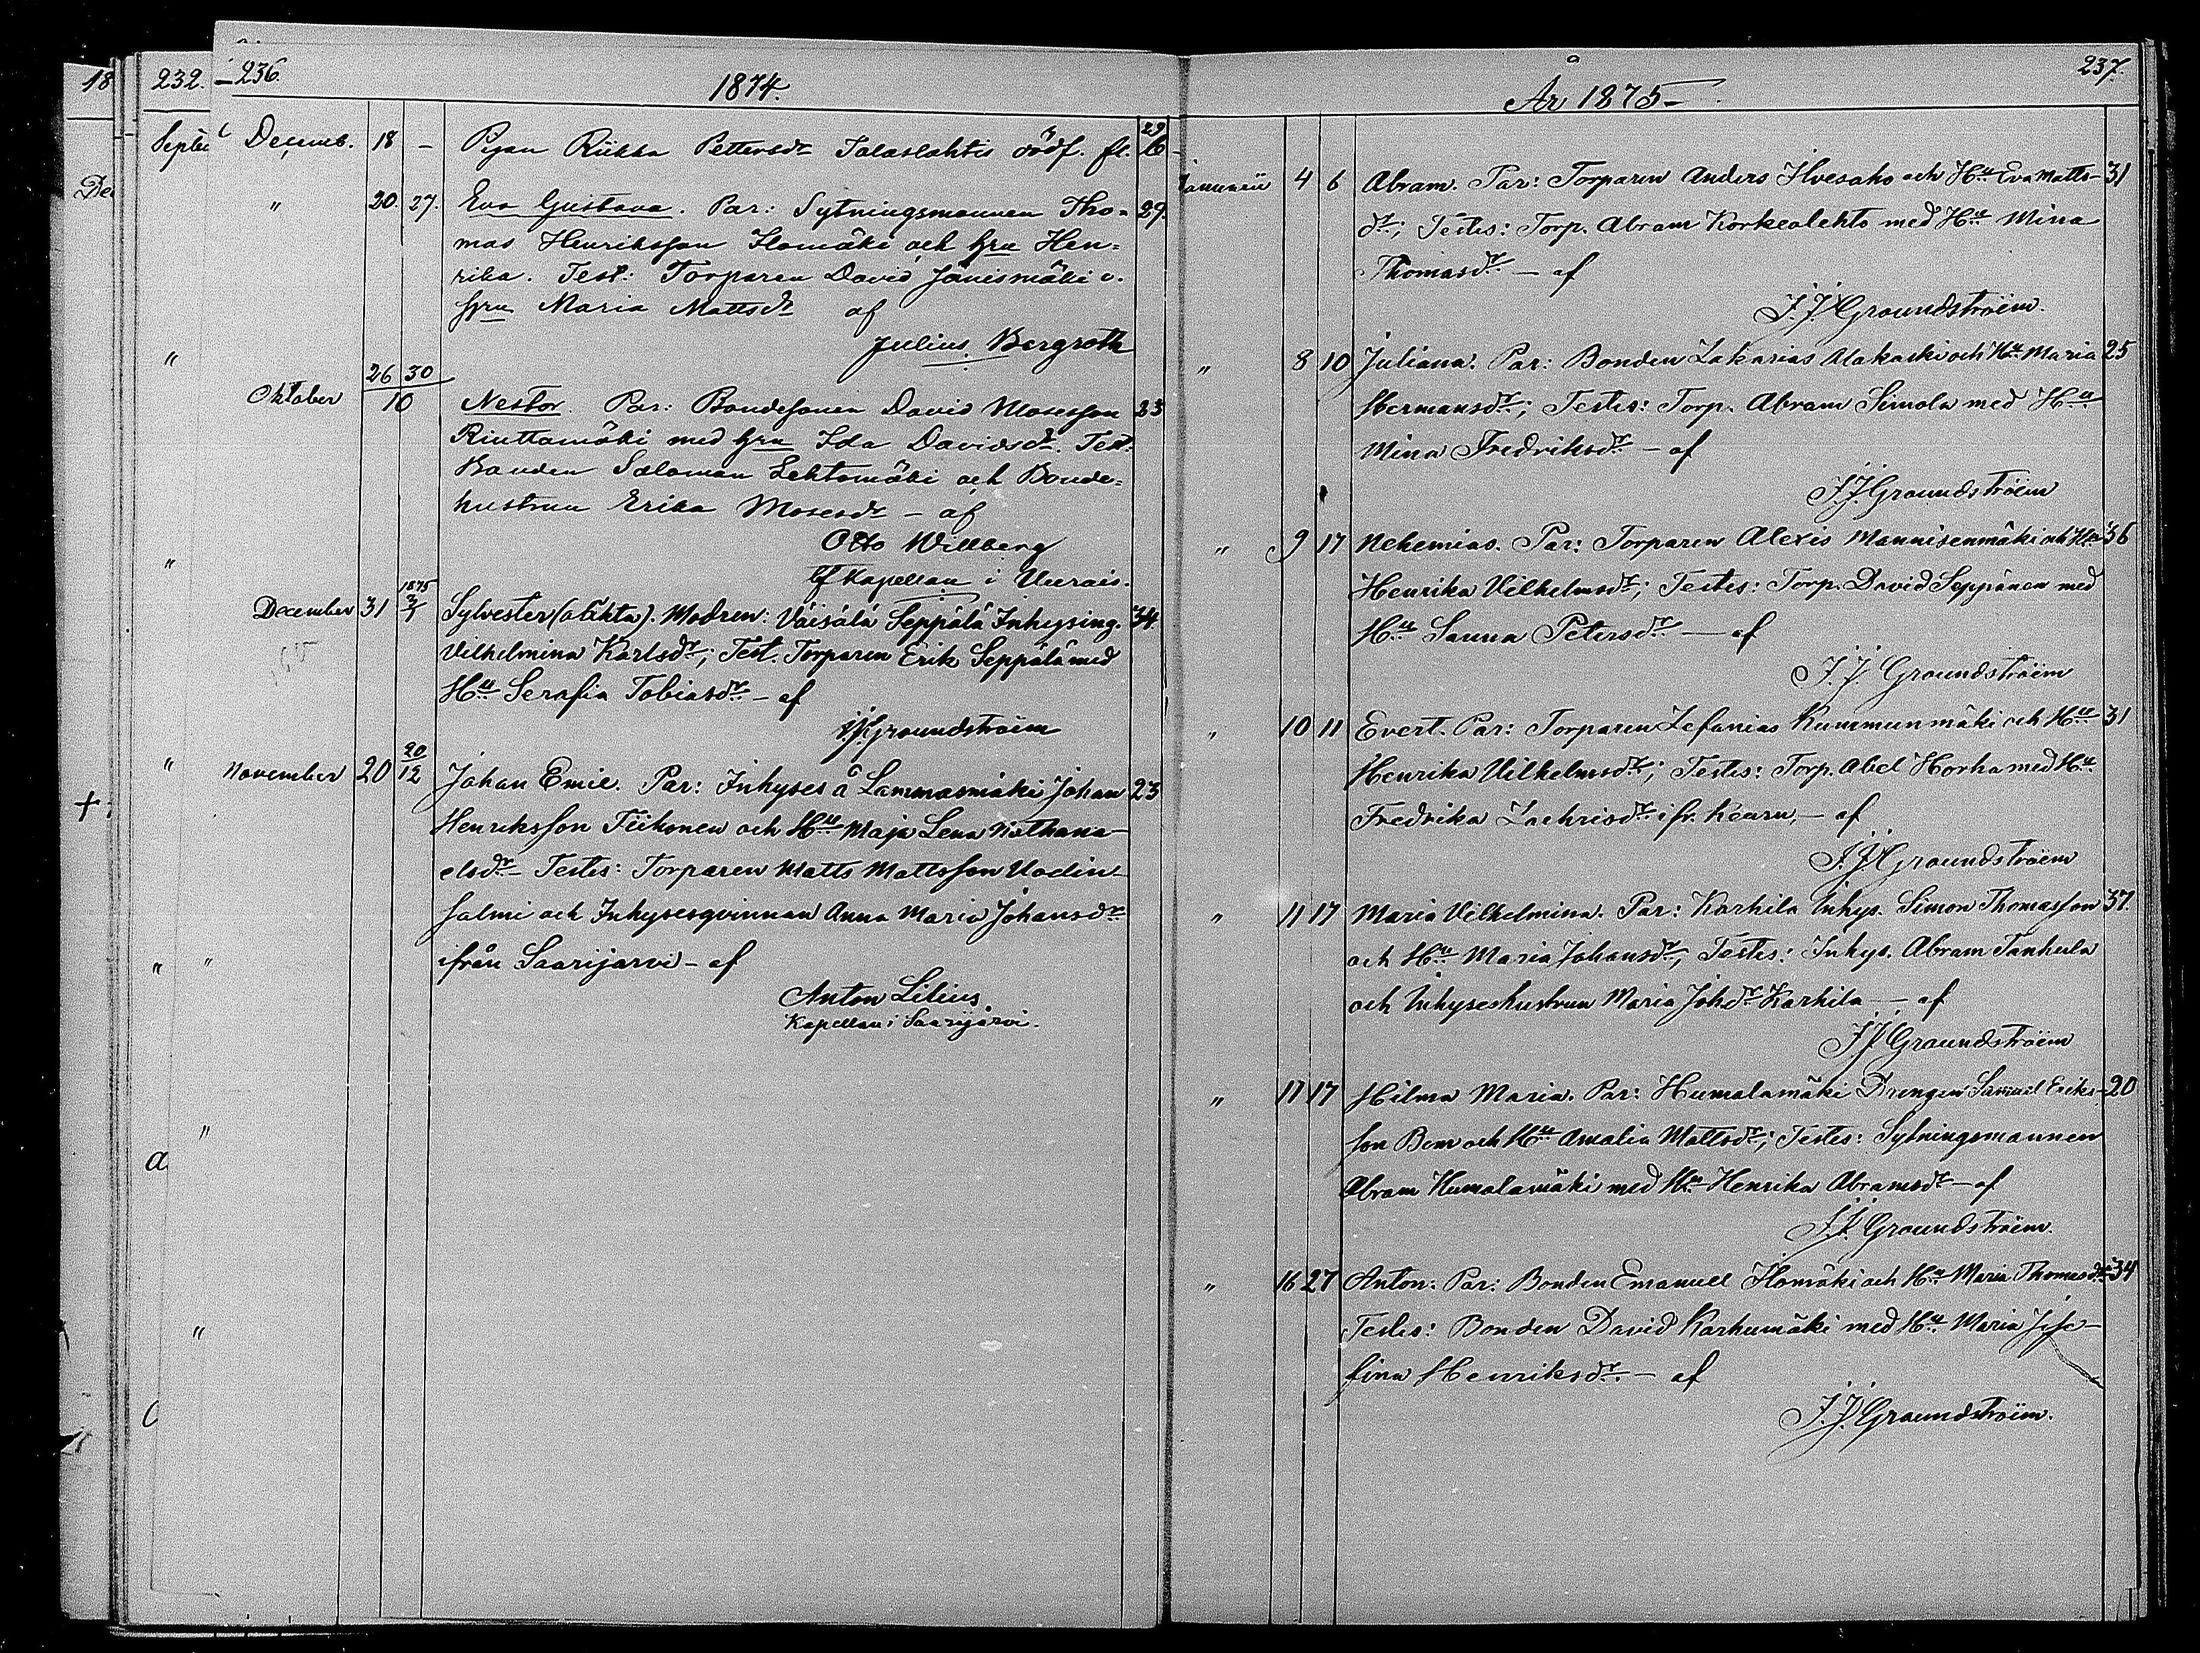 18
232.
236.
1874.
Septe
Decemb. 18 – Pigan Riikka Pettersdr Salaslahtis dödf. fl. 29 16
De
" 20. 27. Eva Gustava. Par: Sytningsmannen Tho- 29
mas Henriksson Ilomäki och hru Hen-
rika. Test: Torparen David Jänismäki o.
hru Maria Mattsdr af
Julius Bergroth
"
Oktober 26 30/10 Nestor. Par: Bondesonen David Mosesson 23
Riuttamäki med hru Ida Davidsdr. Test:
Bonden Salomon Lehtomäki och Bonde-
hustrun Erika Mosesdr – af
Otto Willberg
tf Kapellan i Uurais.
"
December 31 1875 3/1 Sylvester (oäkta). Modren: Väisälä Seppälä Inhysing. 34.
Vilhelmina Karlsdr; Test. Torparen Erik Seppälä med
Hu Serafia Tobiasdr – af
J.J. Groundstroëm
"
November 20 20/12 Johan Emil. Par: Inhyses å Lammasmäki Johan 23
Henriksson Tiikonen och Hu Maja Lena Nathana-
elsdr – Testes: Torparen Matts Mattsson Uodin-
salmi och Inhysesqvinnan Anna Maria Johansdr
ifrån Saarijärvi – af
Anton Lilius.
Kapellan i Saarijärvi.
+
" "
"
a
"
237.
År 1875 –
Januarii 4 6 Abram. Par: Torparen Anders Ilvesaho och Hu Eva Matts- 31
dr; Testes: Torp. Abram Korkealehto med Hu Mina
Thomasdr – af
J.J. Groundstroëm.
" 8 10 Juliana. Par: Bonden Zakarias Alakaski och Hu Maria 25
Hermansdr; Testes: Torp. Abram Simola med Hu
Mina Fredriksdr – af
J.J. Groundstroëm
" 9 17 Nehemias. Par: Torparen Alexis Mannisenmäki och Hu 36
Henrika Vilhelmsdr; Testes: Torp. David Seppänen med
Hu Sanna Petersdr – af
J.J. Groundstroëm
" 10 11 Evert. Par: Torparen Zefanias Kummunmäki och Hu 31
Henrika Vilhelmsdr; Testes: Torp. Abel Horha med Hu
Fredrika Zachrisdr ifr. Keuru, – af
J.J. Groundstroëm
" 11 17 Maria Vilhelmina. Par: Karhila Inhys. Simon Thomasson 37.
och Hu Maria Johansdr; Testes: Inhys. Abram Tanhula
och Inhyseshustrun Maria Johdr Karhila – af
J.J. Groundstroëm
" 11 17 Hilma Maria. Par: Humalamäki Drengen Samuel Eriks- 20
son Bom och Hu Amalia Mattsdr; Testes: Sytningsmannen
Abram Humalamäki med Hu Henrika Abramsdr – af
J.J. Groundstroëm.
" 16 27 Anton: Par: Bonden Emanuel Ilomäki och Hu Maria Thomasdr 34
Testes: Bonden David Karhumäki med Hu Maria Jose-
fina Henriksdr. – af
J.J. Groundstroëm.